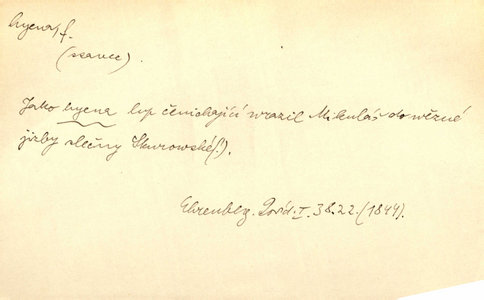 hyena, f.
(savec).
Jako hyena lup čenichající vrazil Mikuláš do věžné
jizby slečny Skurowské(!).
Ehrenberg. Pověd. I. 38.22. (1844).